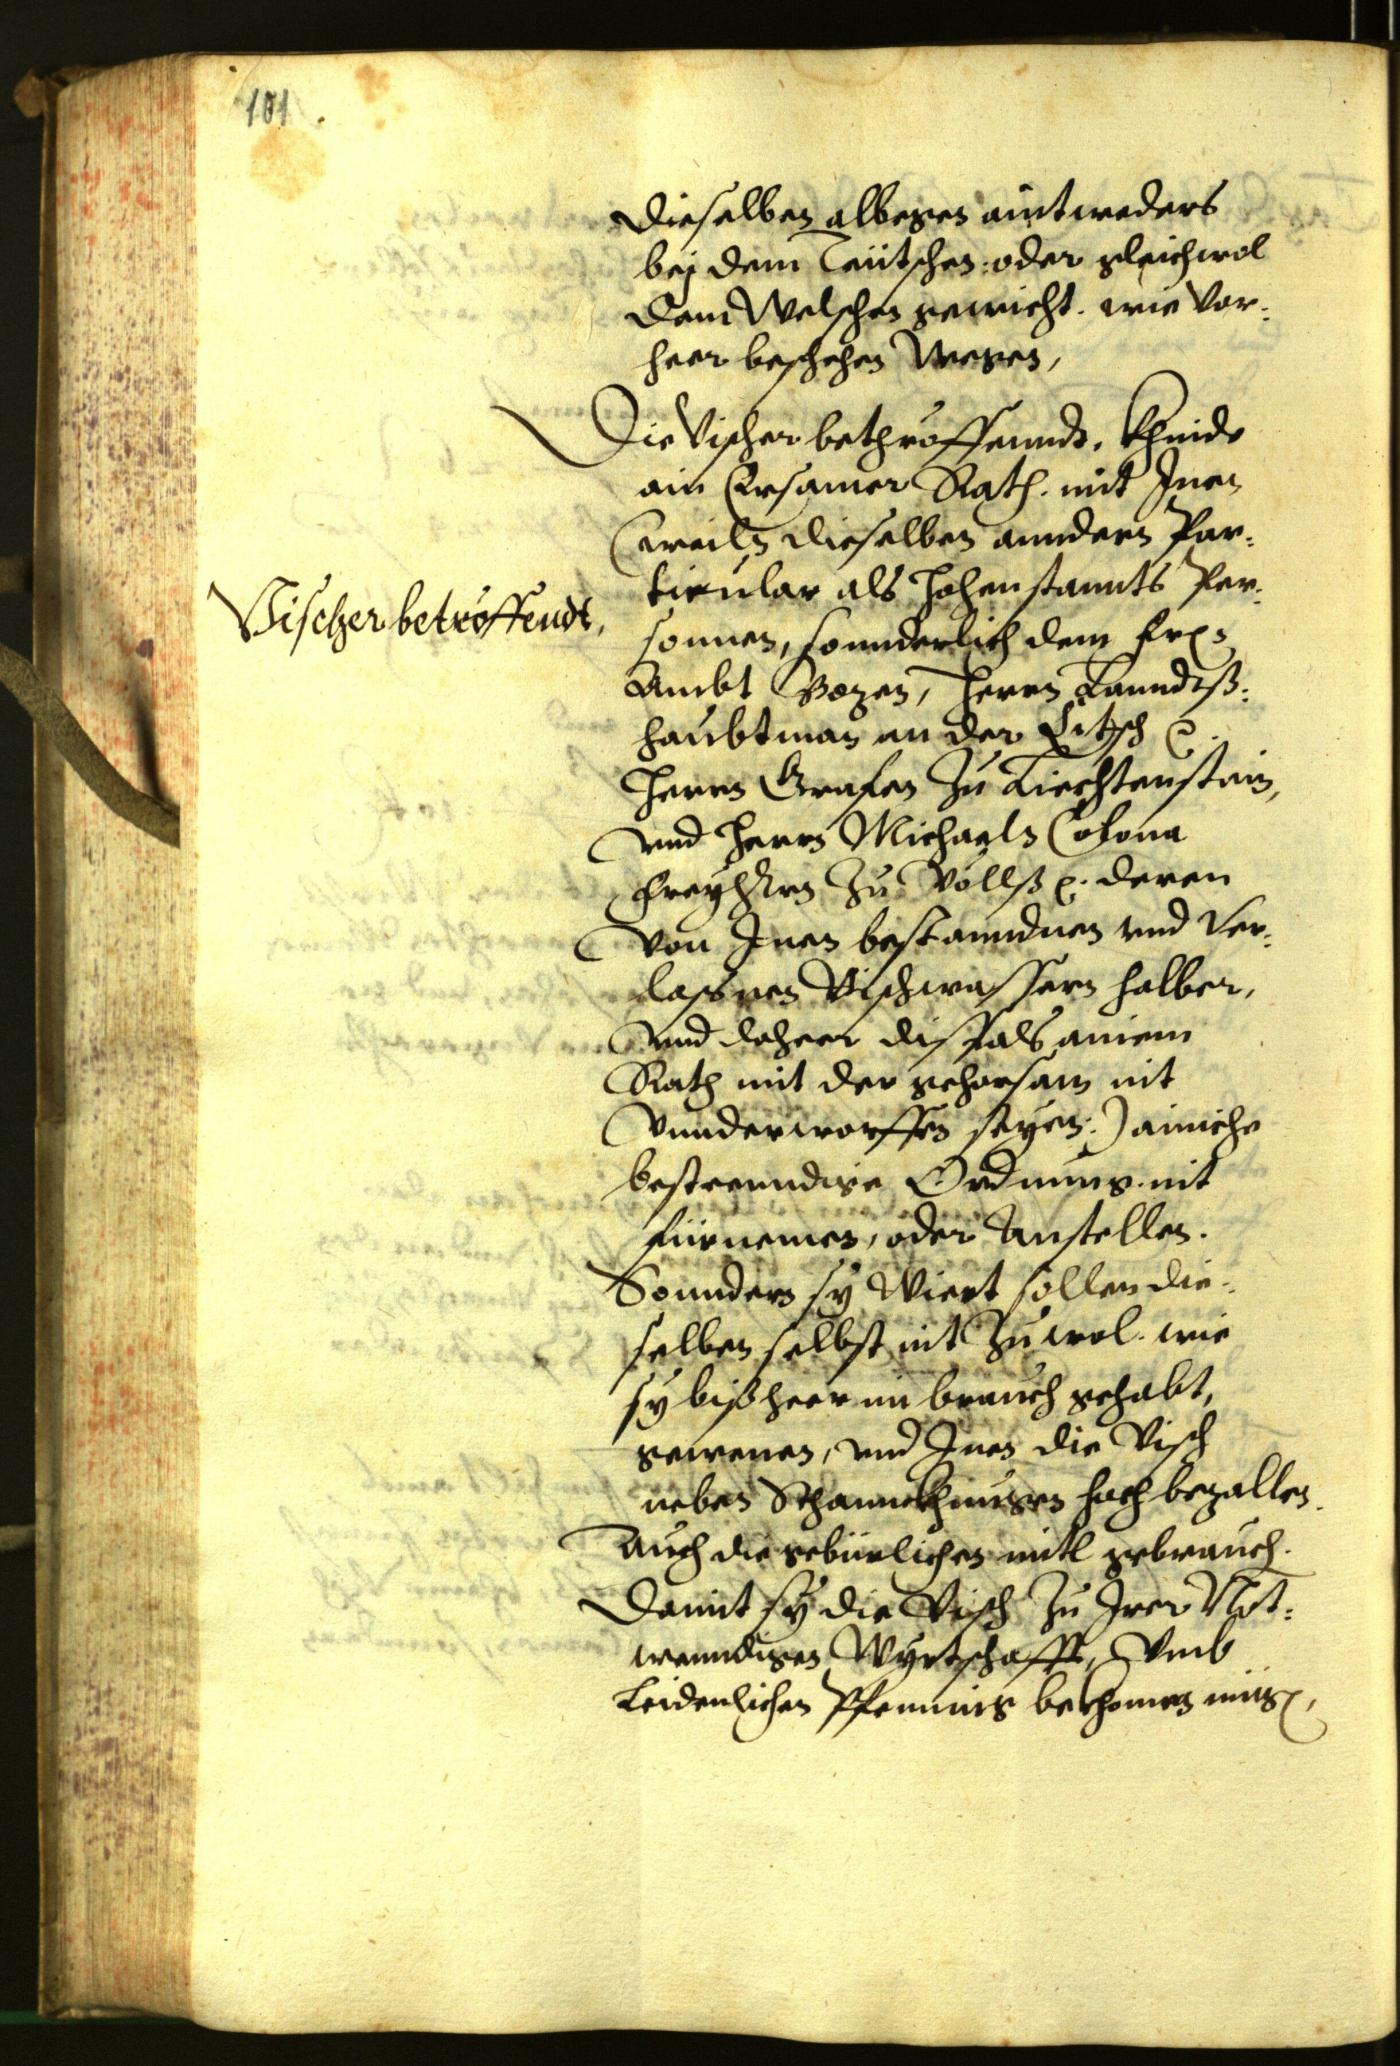 101
dieselben albegen aintweders
bej dem Teütschen: oder gleichwol
dem Welschen gewicht. wie vor:
heer beschehen Wegen,
Die Vischer bethroffenndt, khinde
ain Ersamer Rath. mit Inen
(weiln dieselben anndern Par:
ticular als hohenstannts Per:
Vischer betroffendt,
sonnen, sonnderlich dem
Ambt Bozen, Herrn Lanndtß:
haubtman an der Etsch
Herrn Grafen zu Liechtenstain,
vnd Herrn Michaeln Colona
Freyhern zu Völlß deren
von Inen bestanndnen vnd Ver:
lassnen Vischwassern halber,
vnd daheer dißfals ainem
Rath mit der gehorsam nit
vnnderworffen seyen:) ainiche
bestenndige Ordnung. nit
fürnemen, oder Anstellen.
Sonndern sy Wiert sollen die:
selben selbst nit zu wol. wie
sy bißheer im brauch gehabt,
gewenen, vnd Inen die Visch
neben Schannckhungen hoch bezallen.
Auch die gebürlichen mitl gebrauch.
Damit sy die Visch zu Irer Not:
wenndigen Wyrtschafft, vmb
Leidenlichen Pfenning bekhomen müg,